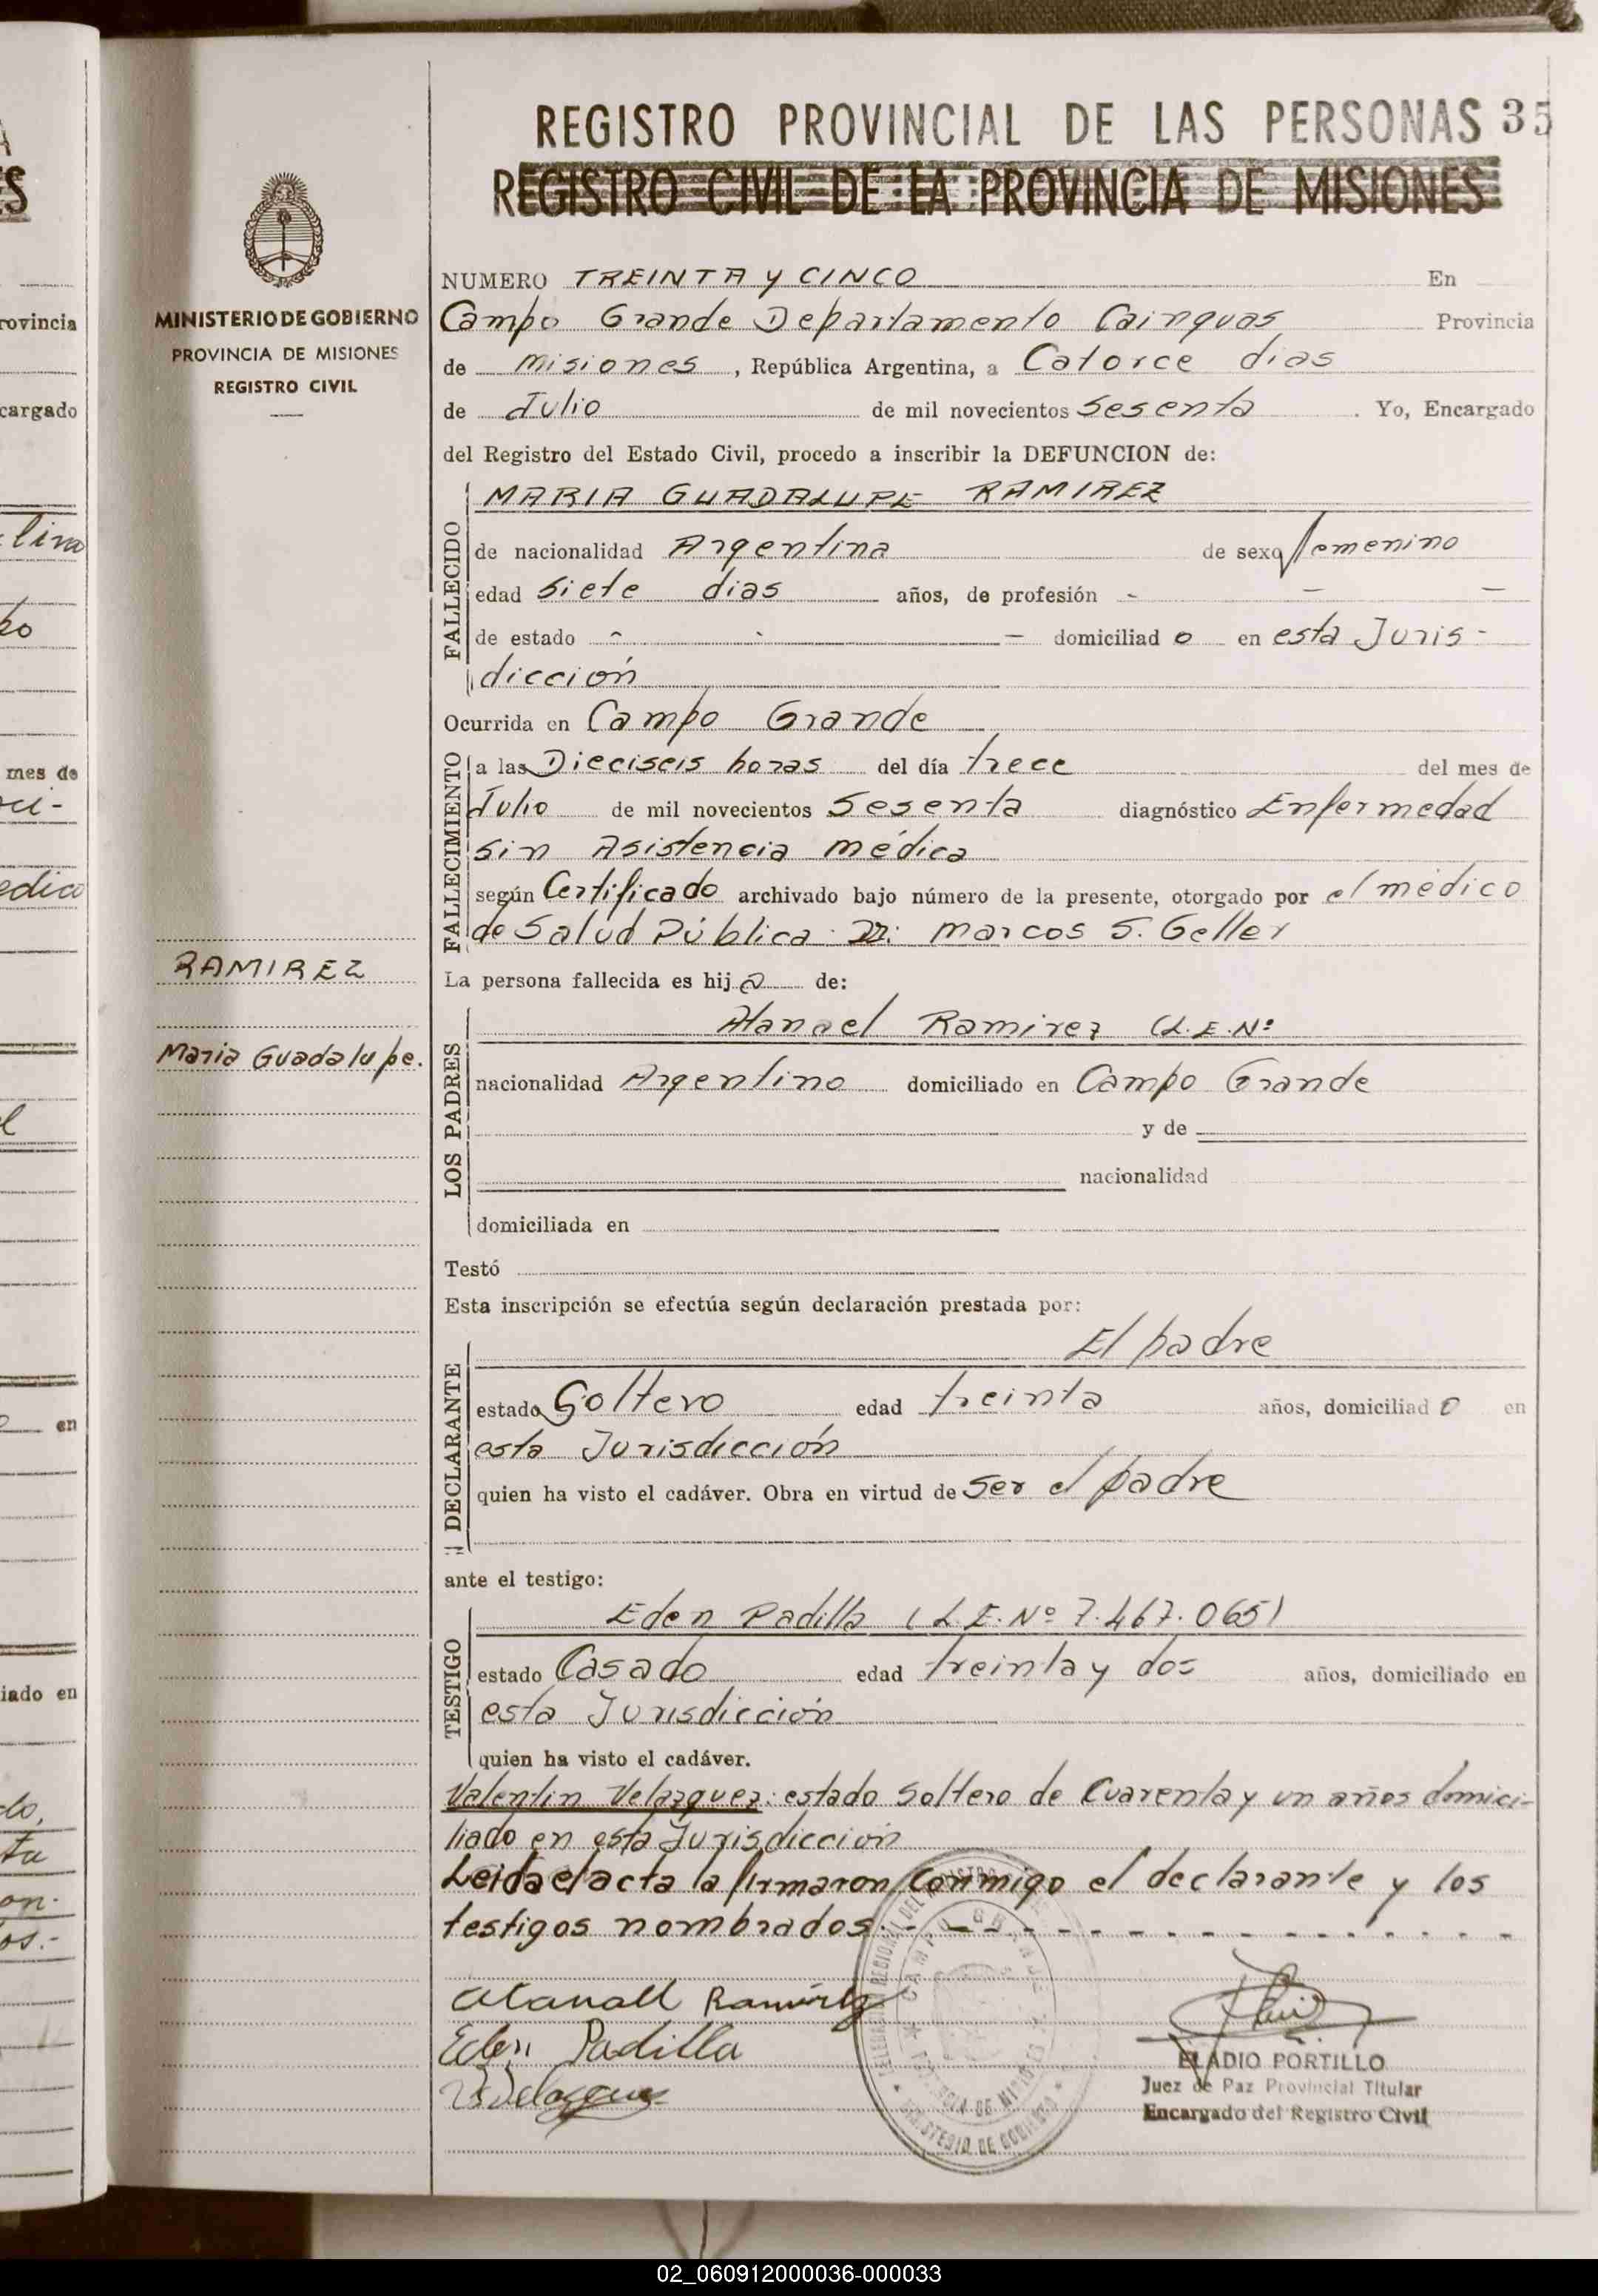 REGISTRO PROVINCIAL DE LAS PERSONAS 35
REGISTRO CIVIL DE LA PROVINCIA DE MISIONES
MINISTERIO DE GOBIERNO
PROVINCIA DE MISIONES
REGISTRO CIVIL
RAMIREZ
Maria Guadalupe.
NUMERO TREINTA y CINCO En
Campo Grande Departamento Cainguas Provincia
de Misiones, República Argentina, a Catorce dias
de Julio de mil novecientos Sesenta. Yo, Encargado
del Registro del Estado Civil, procedo a inscribir la DEFUNCION de:
FALLECIDO
MARIA GUADALUPE RAMIREZ
de nacionalidad Argentina de sexo femenino
edad Siete dias años, de profesión - - -
de estado - - - domiciliad o en esta Juris-
dicción
Ocurrida en Campo Grande
FALLECIMIENTO
a las Dieciseis horas del día trece del mes de
Julio de mil novecientos Sesenta diagnóstico Enfermedad
sin Asistencia médica
según Certificado archivado bajo número de la presente, otorgado por el médico
de Salud Pública Dr: Marcos S. Geller
La persona fallecida es hij a de:
LOS PADRES
Atanael Ramirez (L.E.Nº
nacionalidad Argentino domiciliado en Campo Grande
y de
nacionalidad
domiciliada en
Testó
Esta inscripción se efectúa según declaración prestada por:
DECLARANTE
El padre
estado Soltero edad treinta años, domiciliad o en
esta Jurisdicción
quien ha visto el cadáver. Obra en virtud de Ser el padre
ante el testigo:
TESTIGO
Eden Padilla (L.E.Nº 7.467.065)
estado Casado edad treinta y dos años, domiciliado en
esta Jurisdicción
quien ha visto el cadáver.
Valentin Velazquez: estado Soltero de Cuarenta y un años domici-
liado en esta Jurisdicción
Leida el acta la firmaron conmigo el declarante y los
testigos nombrados.- - - - - - - - - - - -
Atanael Ramirez
Eden Padilla
V Velazquez
ELADIO PORTILLO
Juez de Paz Provincial Titular
Encargado del Registro Civil
02_060912000036-000033